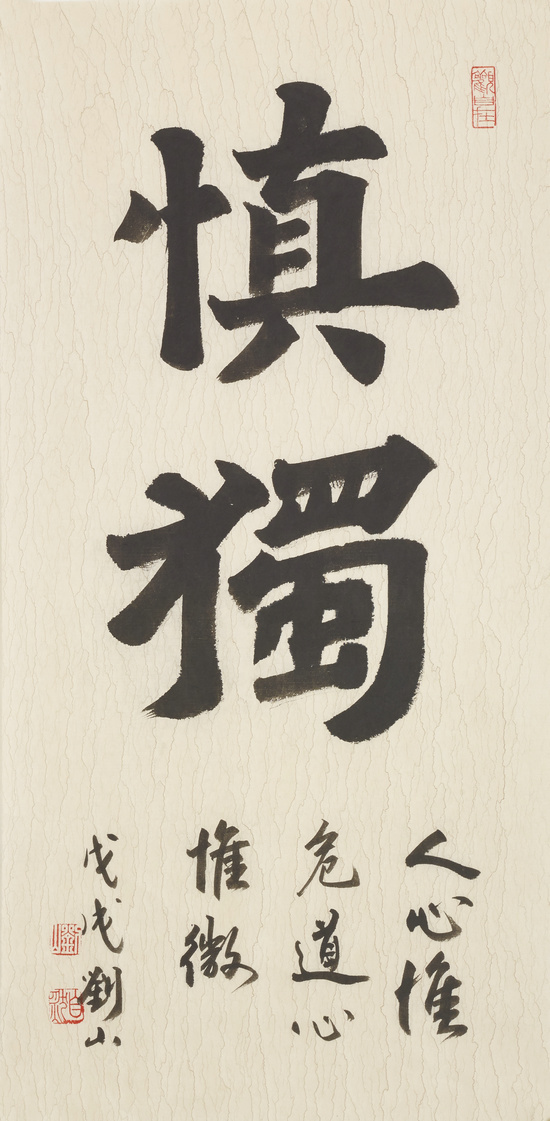 慎獨
人心惟
危道心
惟微
戊戌劉山